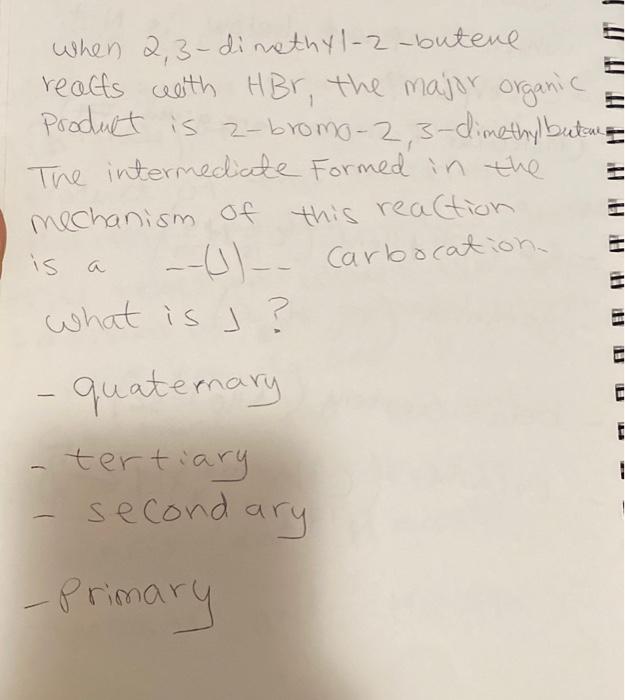 when 2,3-dimethyl-2-butene
reacts with HBr, the major organic
Product is 2-bromo-2,3-dimethylbutane
The intermediate Formed in the
mechanism of this reaction
is a --(J)-- carbocation.
what is J ?
- quaternary
- tertiary
- secondary
- Primary